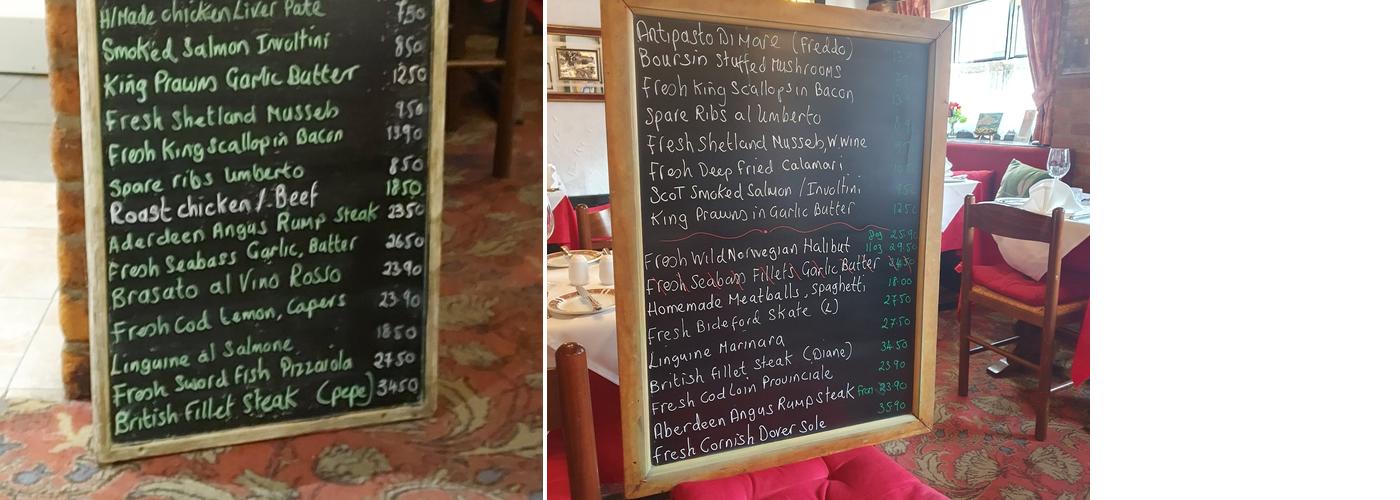 H/Made chicken Liver Pate 750
Smoked Salmon Involtini 850
King Prawns Garlic Butter 1250
Fresh Shetland Mussels 950
Fresh King scallop in Bacon 1390
Spare ribs umberto 850
Roast chicken / Beef 1850
Aderdeen Angus Rump Steak 2350
Fresh Seabass Garlic, Butter 2650
Brasato al Vino Rosso 2390
Fresh Cod Lemon, Capers 23.90
Linguine al Salmone 1850
Fresh Sword Fish Pizzaiola 27.50
British Fillet Steak (pepe) 3450
Antipasto Di Mare (Freddo)
Boursin Stuffed Mushrooms
Fresh King Scallops in Bacon
Spare Ribs al Umberto
Fresh Shetland Mussels, W Wine
Fresh Deep Fried Calamari
Scot Smoked Salmon / Involtini
King Prawns in Garlic Butter 1250
Fresh Wild Norwegian Halibut 29.50
Fresh Seabass Fillets Garlic Butter
Homemade Meatballs, spaghetti 18.00
Fresh Bideford Skate (L) 27.50
Linguine Marinara 27.50
British Fillet Steak (Diane) 34.50
Fresh Cod Loin Provinciale 23.90
Aberdeen Angus Rump Steak 23.90
Fresh Cornish Dover Sole 35.90